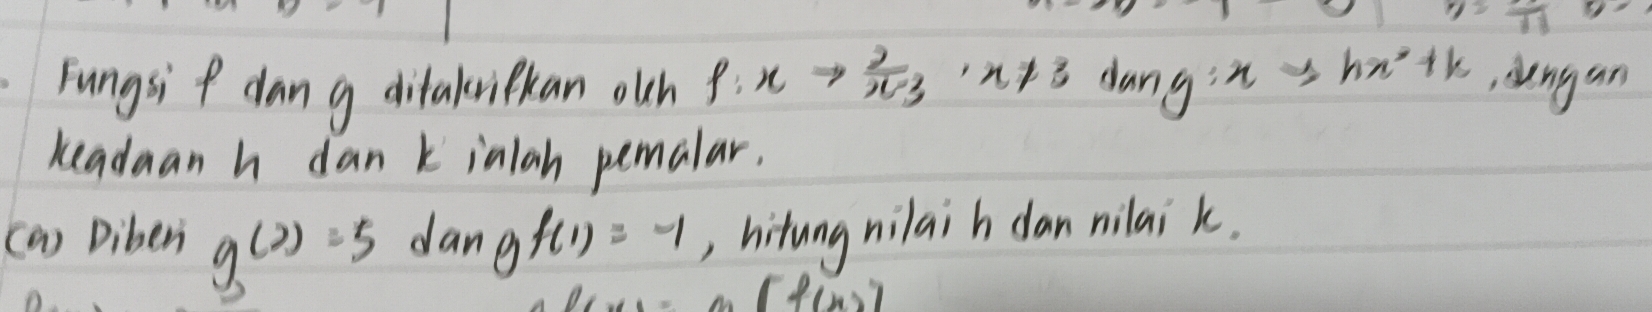 Fungsi f dan g ditakrifkan oleh f : x → 2/(x-3) , x ≠ 3 dan g : x → hx² + k , dengan
keadaan h dan k ialah pemalar.
(a) Diberi g(2) = 5 dan gf(1) = -1, hitung nilai h dan nilai k.
g [f(x)]